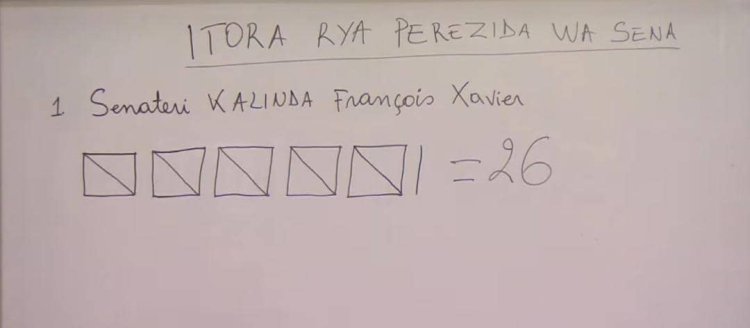 ITORA RYA PEREZIDA WA SENA
1 Senateri KALINDA François Xavier
= 26